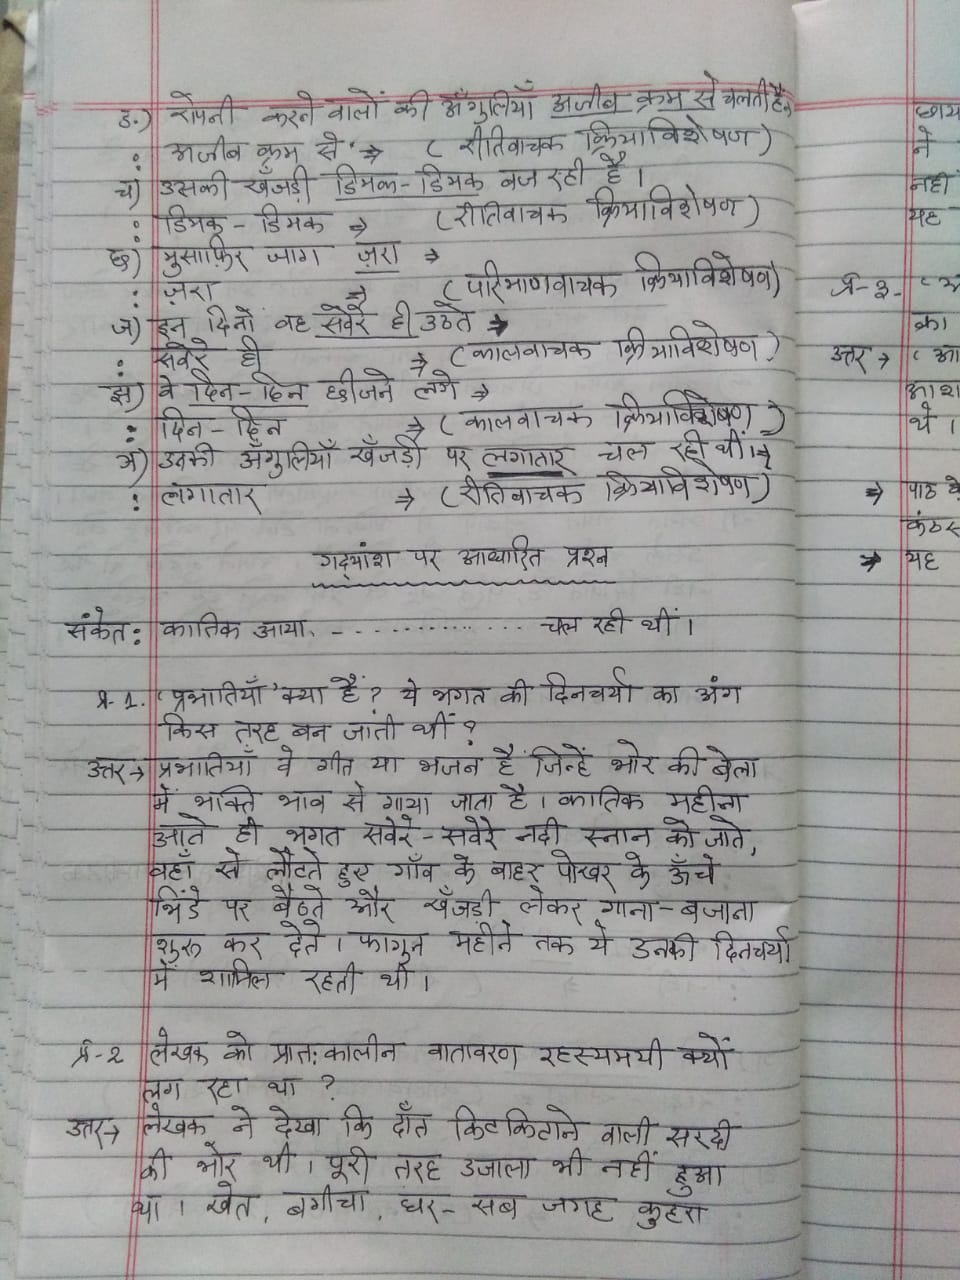 ङ.) रोपनी करने वालों की अँगुलियाँ अजीब क्रम से चलती हैं
: अजीब क्रम से ⇒ (रीतिवाचक क्रियाविशेषण)
च) उसकी खँजड़ी डिमक-डिमक बज रही है।
: डिमक-डिमक ⇒ (रीतिवाचक क्रियाविशेषण)
छ) मुसाफ़िर जाग ज़रा ⇒
: ज़रा ⇒ (परिमाणवाचक क्रियाविशेषण)
ज) इन दिनों वह सवेरे ही उठते ⇒
: सवेरे ही ⇒ (कालवाचक क्रियाविशेषण)
झ) वे दिन-दिन छीजने लगे ⇒
: दिन-दिन ⇒ (कालवाचक क्रियाविशेषण)
ञ) उनकी अँगुलियाँ खँजड़ी पर लगातार चल रही थीं। ⇒
: लगातार ⇒ (रीतिवाचक क्रियाविशेषण)
गद्यांश पर आधारित प्रश्न
संकेत: कातिक आया. - .............. चल रही थीं।
प्र-1. 'प्रभातियाँ' क्या हैं? ये भगत की दिनचर्या का अंग
किस तरह बन जाती थीं?
उत्तर→ प्रभातियाँ वे गीत या भजन हैं जिन्हें भोर की बेला
में भक्ति भाव से गाया जाता है। कातिक महीना
आते ही भगत सवेरे-सवेरे नदी स्नान को जाते,
वहाँ से लौटते हुए गाँव के बाहर पोखर के ऊँचे
भिंडे पर बैठते और खँजड़ी लेकर गाना-बजाना
शुरू कर देते। फागुन महीने तक ये उनकी दिनचर्या
में शामिल रहती थी।
प्र-2 लेखक को प्रात:कालीन वातावरण रहस्यमयी क्यों
लग रहा था?
उत्तर→ लेखक ने देखा कि दाँत किटकिटाने वाली सरदी
की भोर थी। पूरी तरह उजाला भी नहीं हुआ
था। खेत, बगीचा, घर- सब जगह कुहरा
छाय
ने
नहीं
यह
प्र-3-
का
उत्तर→ 'आ
आश
थे।
⇒ पाठ के
कंठस
⇒ यह